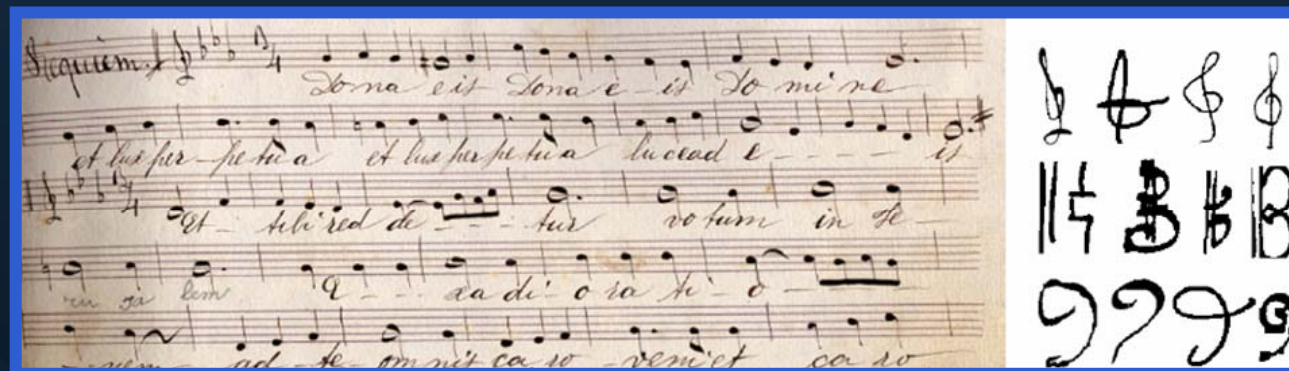 Requiem.
Dona eis Dona e-is Do mi ne
et lux per-pe tu a et lux perpe tu a lucead e - - - - - is
Et - tibi red de - - - tur vo tum in Je -
ru sa lem
di - o ra ti - o -
ad - te - om nis ca ro - veni et ca ro